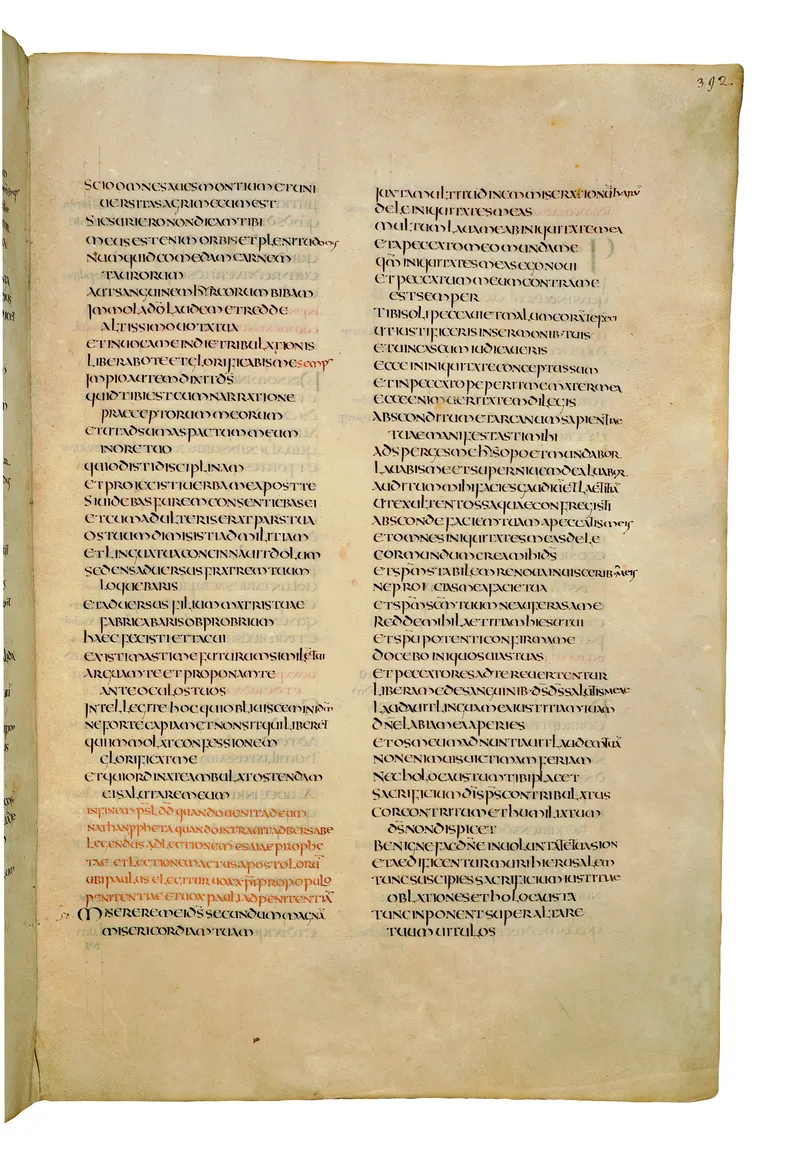 392.
SCIO OMNES AUES MONTIUM ET UNI
UERSITAS AGRI MECUM EST
SI ESURIERO NON DICAM TIBI
MEUS EST ENIM ORBIS ET PLENITUDO EIUS
NUMQUID COMEDAM CARNEM
TAURORUM
AUT SANGUINEM HYRCORUM BIBAM
IMMOLA DŌ LAUDEM ET REDDE
ALTISSIMO UOTA TUA
ET INUOCA ME IN DIE TRIBULATIONIS
LIBERABO TE ET GLORIFICABIS ME SEMP
IMPIO AUTEM DIXIT D̄S
QUID TIBI EST CUM NARRATIONE
PRAECEPTORUM MEORUM
ET UT ADSUMAS PACTUM MEUM
IN ORE TUO
QUI ODISTI DISCIPLINAM
ET PROIECISTI UERBA MEA POST TE
SI UIDEBAS FUREM CONSENTIEBAS EI
ET CUM ADULTERIS ERAT PARS TUA
OS TUUM DIMISISTI AD MILITIAM
ET LINGUA TUA CONCINNAUIT DOLUM
SEDENS ADUERSUS FRATREM TUUM
LOQUEBARIS
ET ADUERSUS FILIUM MATRIS TUAE
FABRICABARIS OBPROBRIUM
HAEC FECISTI ET TACUI
EXISTIMASTI ME FUTURUM SIMILĒ TUI
ARGUAM TE ET PROPONAM TE
ANTE OCULOS TUOS
INTELLEGITE HOC QUI OBLIUISCEMINI DM̄
NE FORTE CAPIAM ET NON SIT QUI LIBERET
QUI IMMOLAT CONFESSIONEM
GLORIFICAT ME
ET QUI ORDINATE AMBULAT OSTENDAM
EI SALUTARE MEUM
IN FINEM PSL DD QUANDO UENIT AD EUM
NATHAN PPHETA QUANDO INTRAUIT AD BERSABE
LEGENDUS AD LECTIONEM ESAIAE PROPHE
TAE ET LECTIONEM ACTUS APOSTOLORŪ
UBI PAULUS ELEGITUR UOX XP̄I PRO POPULO
PENITENTIAE ET UOX PAULI AD PENITENTIĀ
50 MISERERE MEI D̄S SECUNDUM MAGNĀ
MISERICORDIAM TUAM
IUXTA MULTITUDINEM MISERATIONŪ TUARŪ
DELE INIQUITATES MEAS
MULTUM LAUA ME AB INIQUITATE MEA
ET A PECCATO MEO MUNDA ME
QM̄ INIQUITATES MEAS EGO NOUI
ET PECCATUM MEUM CONTRA ME
EST SEMPER
TIBI SOLI PECCAUI ET MALUM CORĀ TE FECI
UT IUSTIFICERIS IN SERMONIB· TUIS
ET UINCAS CUM IUDICAUERIS
ECCE IN INIQUITATE CONCEPTUS SUM
ET IN PECCATO PEPERIT ME MATER MEA
ECCE ENIM UERITATEM DILEGIS
ABSCONDITUM ET ARCANUM SAPIENTIAE
TUAE MANIFESTASTI MIHI
ADSPERGES ME HYSOPO ET MUNDABOR
LAUABIS ME ET SUPER NIUEM DEALUABOR
AUDITUM MIHI FACIES GAUDIŪ ET LAETITIĀ
UT EXULTENT OSSA QUAE CONFREGISTI
ABSCONDE FACIEM TUAM A PECCATIS MEIS
ET OMNES INIQUITATES MEAS DELE
COR MUNDUM CREA MIHI D̄S
ET SPM̄ STABILEM RENOUA IN UISCERIB· MEIS
NE PROICIAS ME A FACIE TUA
ET SPM̄ SCM̄ TUUM NE AUFERAS A ME
REDDE MIHI LAETITIAM HIESU TUI
ET SPŪ POTENTI CONFIRMA ME
DOCEBO INIQUOS UIAS TUAS
ET PECCATORES AD TE REUERTENTUR
LIBERA ME DE SANGUINIB· D̄S D̄S SALUTIS MEAE
LAUDAUIT LINGUA MEA IUSTITIAM TUAM
DN̄E LABIA MEA APERIES
ET OS MEUM ADNUNTIAUIT LAUDEM TUĀ
NON ENIM UIS UICTIMAM FERIAM
NEC HOLOCAUSTUM TIBI PLACET
SACRIFICIUM DĪ SPS̄ CONTRIBULATUS
COR CONTRITUM ET HUMILIATUM
D̄S NON DISPICET
BENIGNE FAC DN̄E IN UOLUNTATE TUA SION
ET AEDIFICENTUR MURI HIERUSALEM
TUNC SUSCIPIES SACRIFICIUM IUSTITIAE
OBLATIONES ET HOLOCAUSTA
TUNC INPONENT SUPER ALTARE
TUUM UITULOS